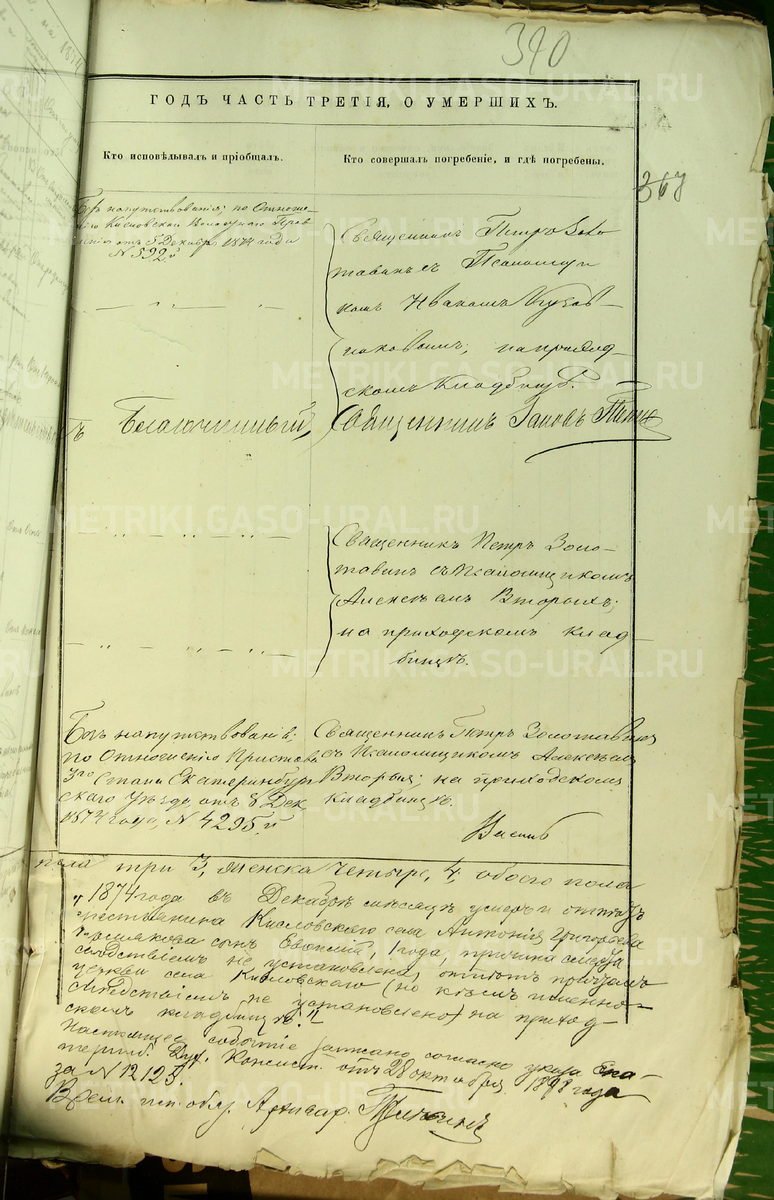 390
ГОДЪ ЧАСТЬ ТРЕТІЯ, О УМЕРШИХЪ.
Кто исповѣдывалъ и пріобщалъ.
Кто совершалъ погребеніе, и гдѣ погребены.
367
Безъ напутствованія; по Отноше-
нію Кисловскаго Волостнаго Прав
ленія отъ 5 Декабр. 1874 года
№ 592й
Священникъ Петръ Золо
тавинъ съ Псаломщи
комъ Иваномъ
на приход-
скомъ кладбищѣ.
Благочинный,
Священникъ Іаковъ
Священникъ Петръ Золо-
тавинъ съ Псаломщикомъ
Алексѣемъ Вторыхъ;
на приходскомъ клад-
бищѣ.
Безъ напутствованія;
по Отношенію Пристава
3го Стана Екатеринбург
скаго Уѣзда, отъ 8 Дек.
1874 года, № 4295й
Священникъ Петръ Золотавинъ
съ Псаломщикомъ Алексѣемъ
Вторыхъ; на приходскомъ
кладбищѣ.
пола три 3, женска четыре, 4, обоего пола
"1874 года въ Декабрѣ мѣсяцѣ умеръ и отпѣтъ
крестьянина Кисловскаго села Антонія Григорьева
сынъ Евѳимій, 1 года, причина смерти
слѣдствіемъ не установлена, отпѣтъ причтомъ
церкви села Кисловскаго (но кѣмъ именно-
слѣдствіемъ не установлено) на приход-
скомъ кладбищѣ."
Настоящее событіе записано согласно указа Ека-
терин. Дух. Консист. отъ 28 октября 1898 года
за № 12125.
Врем. исп. обяз. Архивар.
METRIKI.GASO-URAL.RU
METRIKI.GASO-URAL.RU
METRIKI.GASO-URAL.RU
METRIKI.GASO-URAL.RU
METRIKI.GASO-URAL.RU